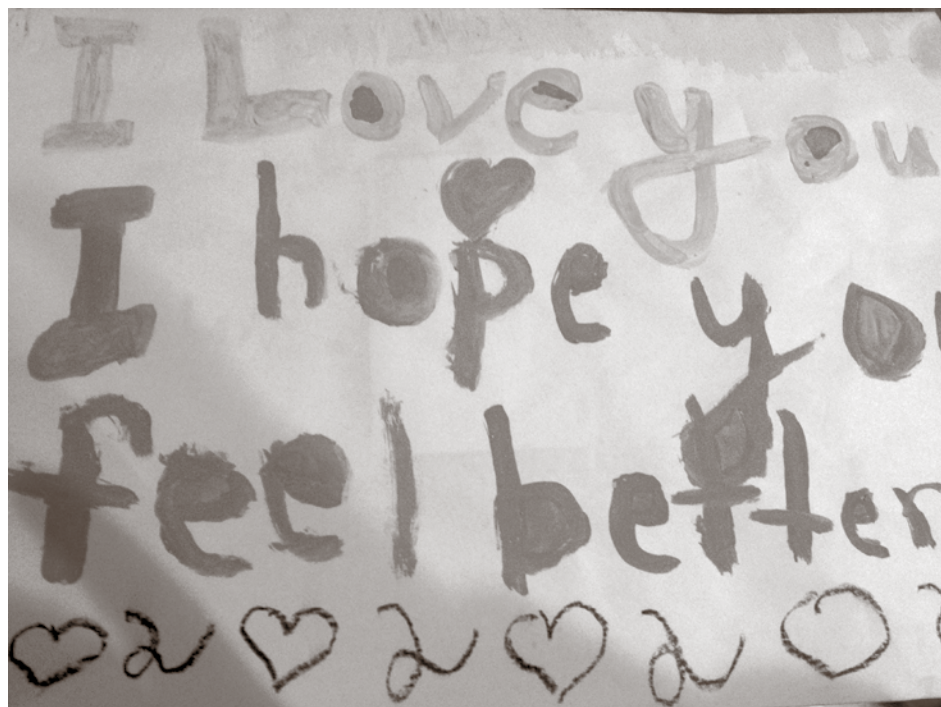 I Love you
I hope you
feel better